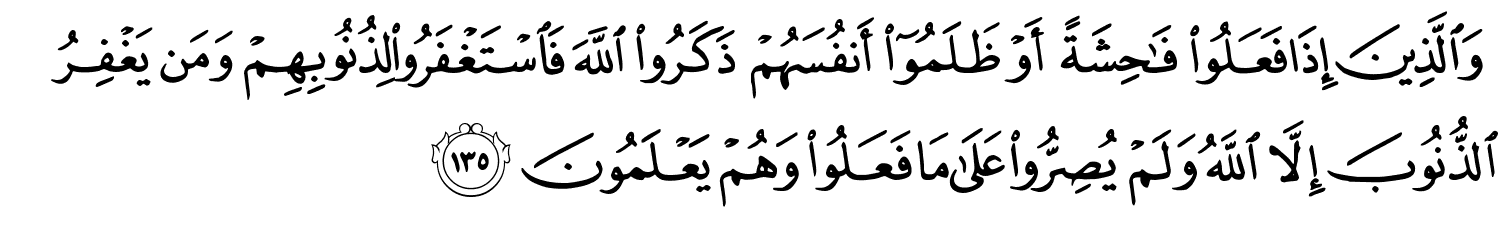 وَٱلَّذِينَ إِذَا فَعَلُوا۟ فَـٰحِشَةً أَوْ ظَلَمُوٓا۟ أَنفُسَهُمْ ذَكَرُوا۟ ٱللَّهَ فَٱسْتَغْفَرُوا۟ لِذُنُوبِهِمْ وَمَن يَغْفِرُ
ٱلذُّنُوبَ إِلَّا ٱللَّهُ وَلَمْ يُصِرُّوا۟ عَلَىٰ مَا فَعَلُوا۟ وَهُمْ يَعْلَمُونَ ١٣٥